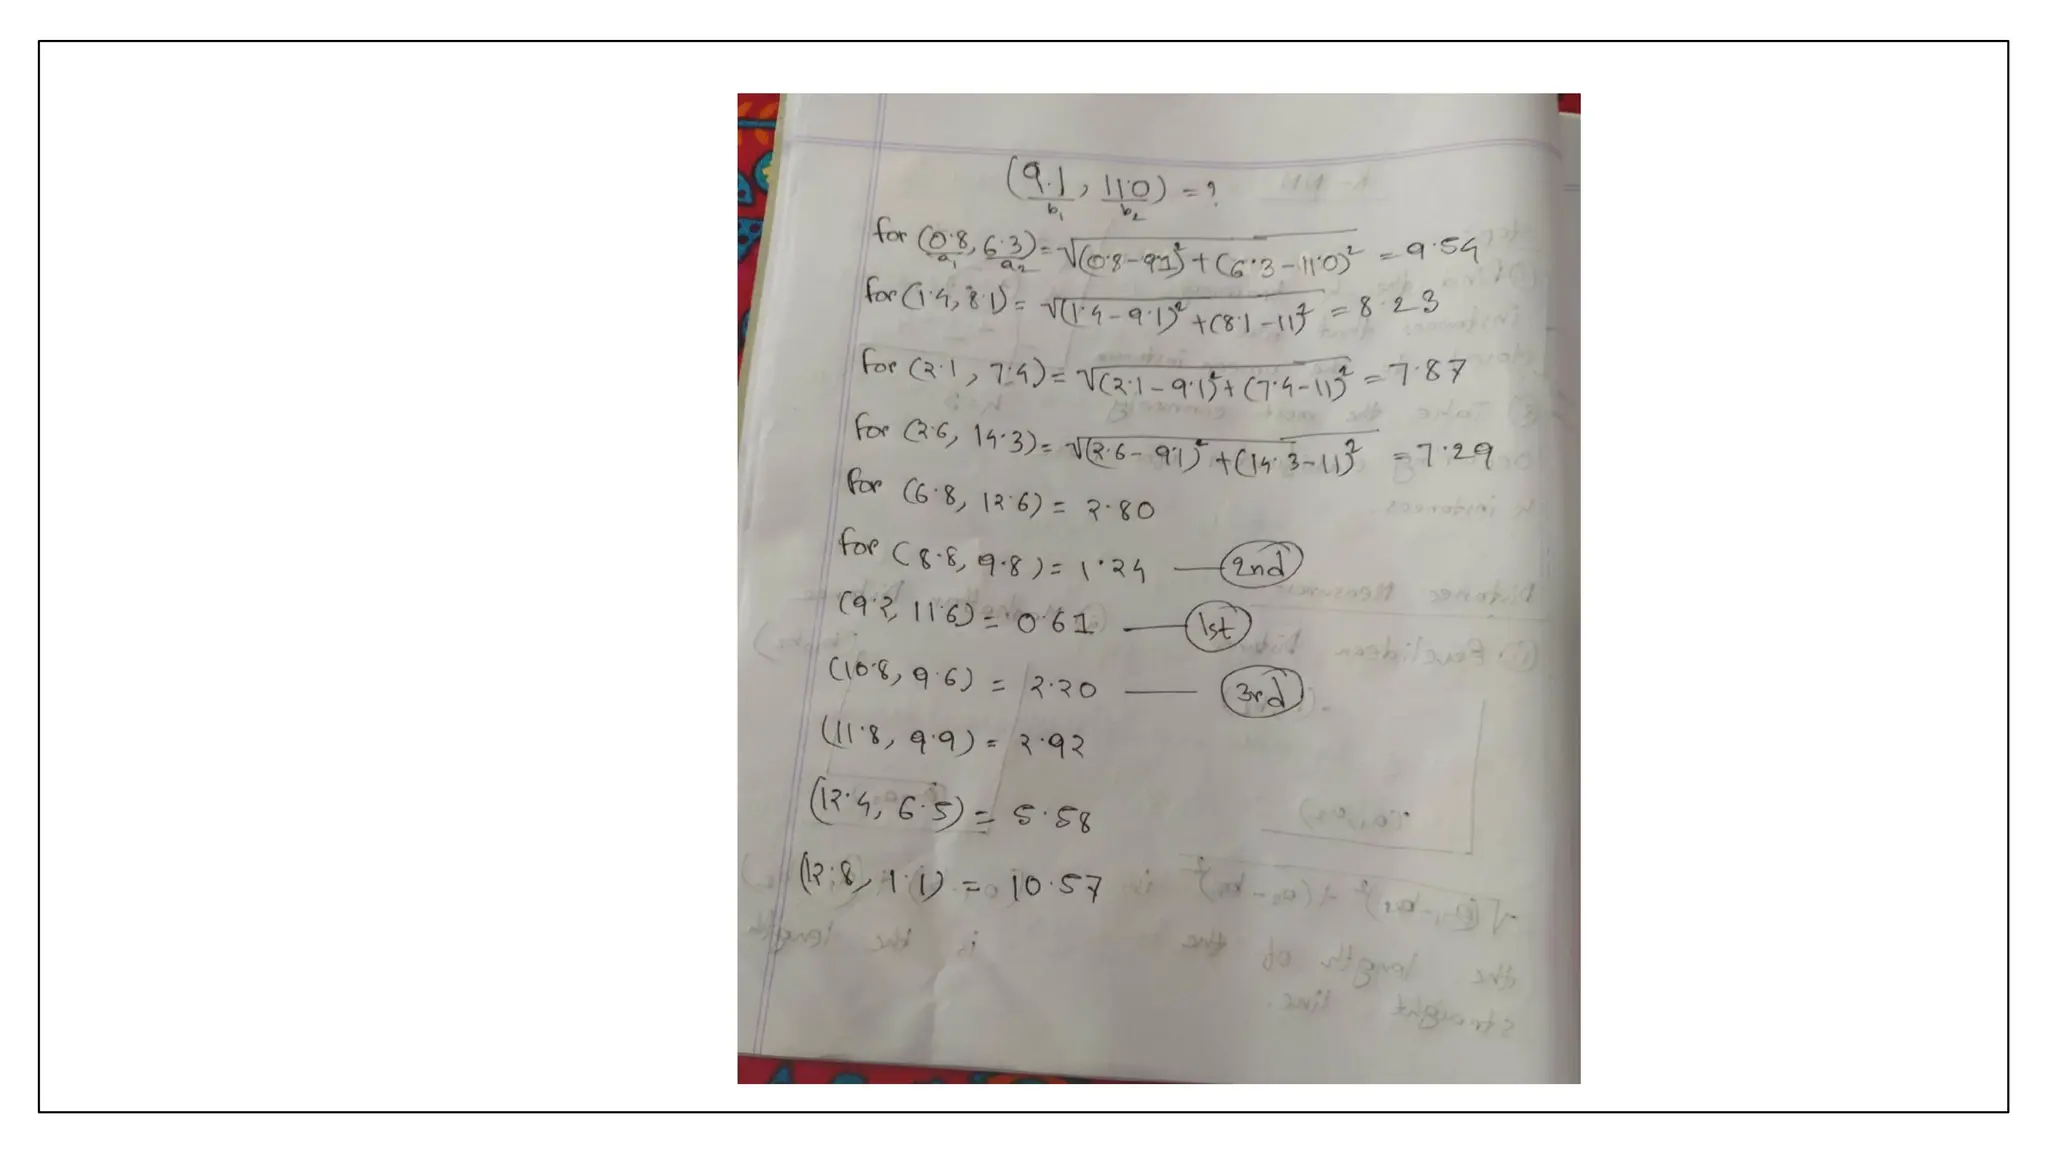 (9.1, 11.0) = ?
b₁ b₂
for (0.8, 6.3) = √(0.8-9.1)² + (6.3-11.0)² = 9.54
a₁ a₂
for (1.4, 8.1) = √(1.4-9.1)² + (8.1-11)² = 8.23
for (2.1, 7.4) = √(2.1-9.1)² + (7.4-11)² = 7.87
for (2.6, 14.3) = √(2.6-9.1)² + (14.3-11)² = 7.29
for (6.8, 12.6) = 2.80
for (8.8, 9.8) = 1.24 — 2nd
(9.2, 11.6) = 0.61 — 1st
(10.8, 9.6) = 2.20 — 3rd
(11.8, 9.9) = 2.92
(12.4, 6.5) = 5.58
(12.8, 1.1) = 10.57